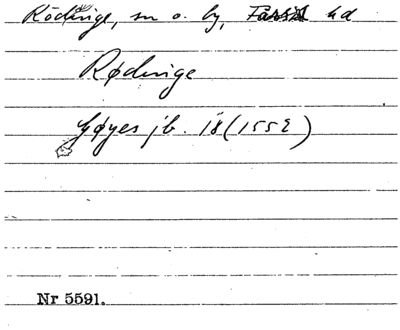 Rödinge, sn o. by, Färs hd
Rødinge
Gøyes jb. 18 (1552)
Nr 5591.